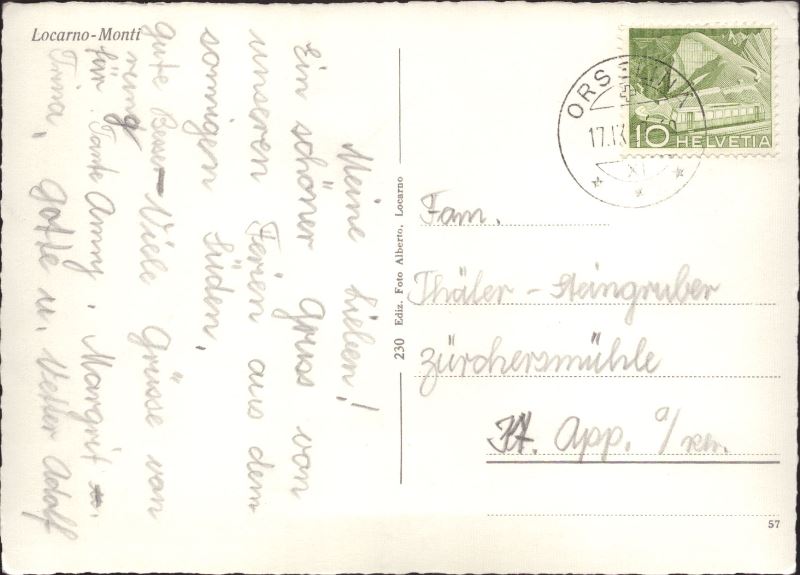 Locarno-Monti
Meine Lieben!
Ein schöner Gruss von
unseren Ferien aus dem
sonnigen Süden.
Viele Grüsse von
Margrit
Trina, Gotte u. Vetter Adolf
gute Besse-
rung
für Tante Anny.
230 Ediz. Foto Alberto, Locarno
ORSELINA
17.IX
10 HELVETIA
Fam.
Thäler-Steingruber
Zürchersmühle
Kt. App. a/Rh.
57